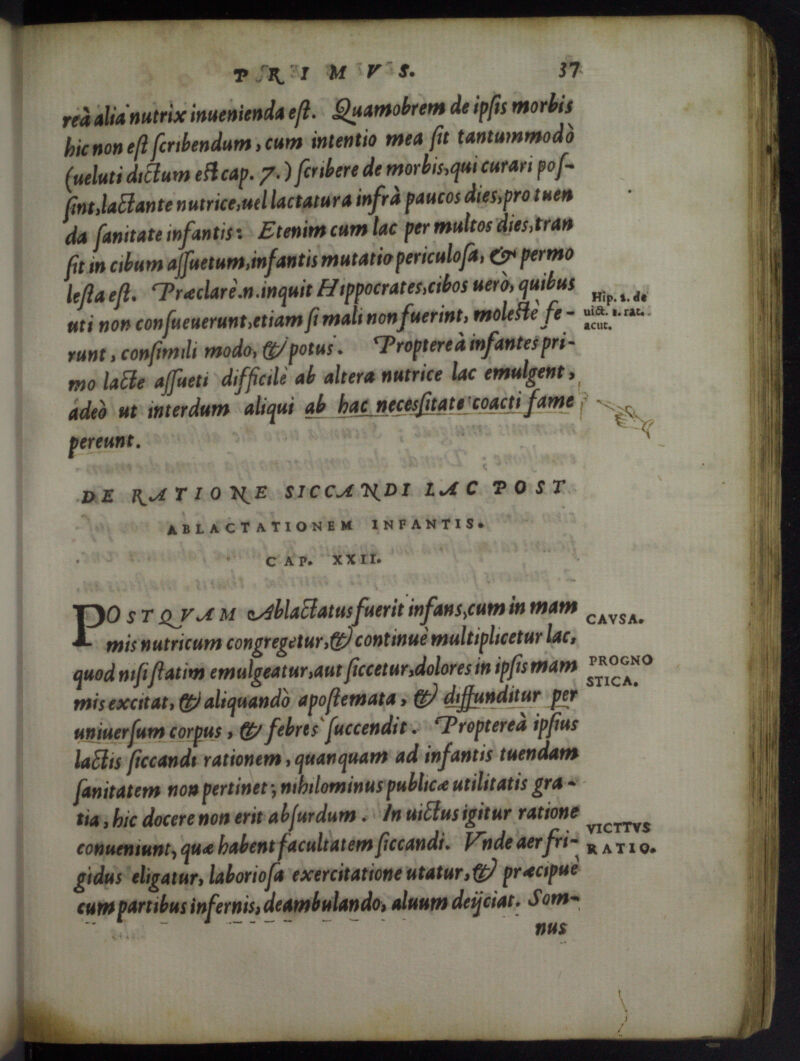 PRIMVS. 37
reà alia nutrix inuenienda est. Quamobrem de ipsis morbis
hic non est scribendum, cum intentio mea sit tantummodò
(ueluti dictum est cap. 7.) scribere de morbis, qui curari pos-
sint, lactante nutrice, uel lactatura infrà paucos dies, pro tuen
da sanitate infantis: Etenim cum lac per multos dies, tran
sit in cibum assuetum, infantis mutatio periculosa, & permo
lesta est. Præclarè.n.inquit Hippocrates, cibos uerò, quibus
uti non consueuerunt, etiam si mali non fuerint, molestè fe-
runt, consimili modo, & potus. Proptereà infantes pri-
mo lacte assueti difficilè ab altera nutrice lac emulgent,
adeò ut interdum aliqui ab hac necessitate coacti fame
pereunt.
Hip. 2. de
uict. r. rat.
acut.
DE RATIONE SICCANDI LAC POST
ABLACTATIONEM INFANTIS.
CAP. XXII.
POSTQVAM Ablactatus fuerit infans, cum in mam
mis nutricum congregetur, & continuè multiplicetur lac,
quod nisi statim emulgeatur, aut siccetur, dolores in ipsis mam
mis excitat, & aliquandò apostemata, & diffunditur per
uniuersum corpus, & febres succendit. Propterea ipsius
lactis siccandi rationem, quanquam ad infantis tuendam
sanitatem non pertinet; nihilominus publicæ utilitatis gra-
tia, hic docere non erit absurdum. In uictus igitur ratione
conueniunt, quæ habent facultatem siccandi. Vnde aer fri-
gidus eligatur, laboriosa exercitatione utatur, & præcipuè
cum partibus infernis, deambulando, aluum deijciat. Som-
nus
CAVSA.
PROGNO
STICA.
VICTTVS
RATIO.